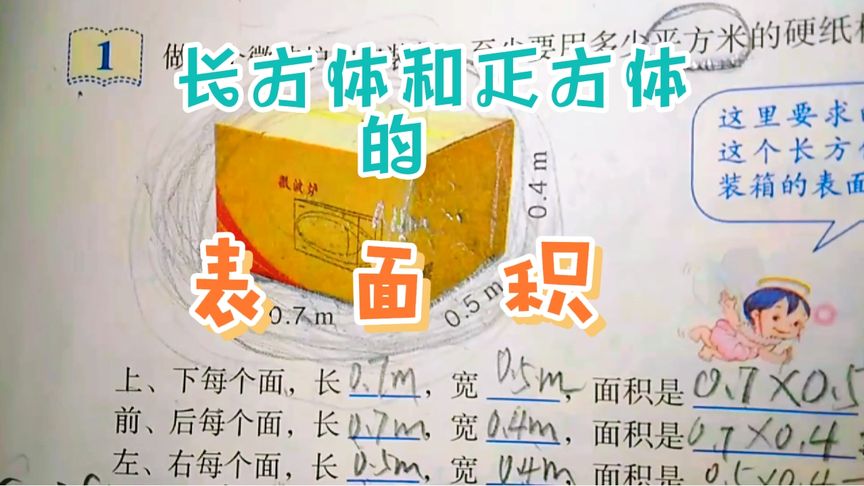 1
至少要用多少平方米的硬纸
长方体和正方体
的
表面积
这里要求
这个长方
装箱的表面
微波炉
0.4 m
0.5 m
0.7 m
上、下每个面，长 0.7m，宽 0.5m，面积是 0.7×0.5
前、后每个面，长 0.7m，宽 0.4m，面积是 0.7×0.4
左、右每个面，长 0.5m，宽 0.4m，面积是 0.5×0.4